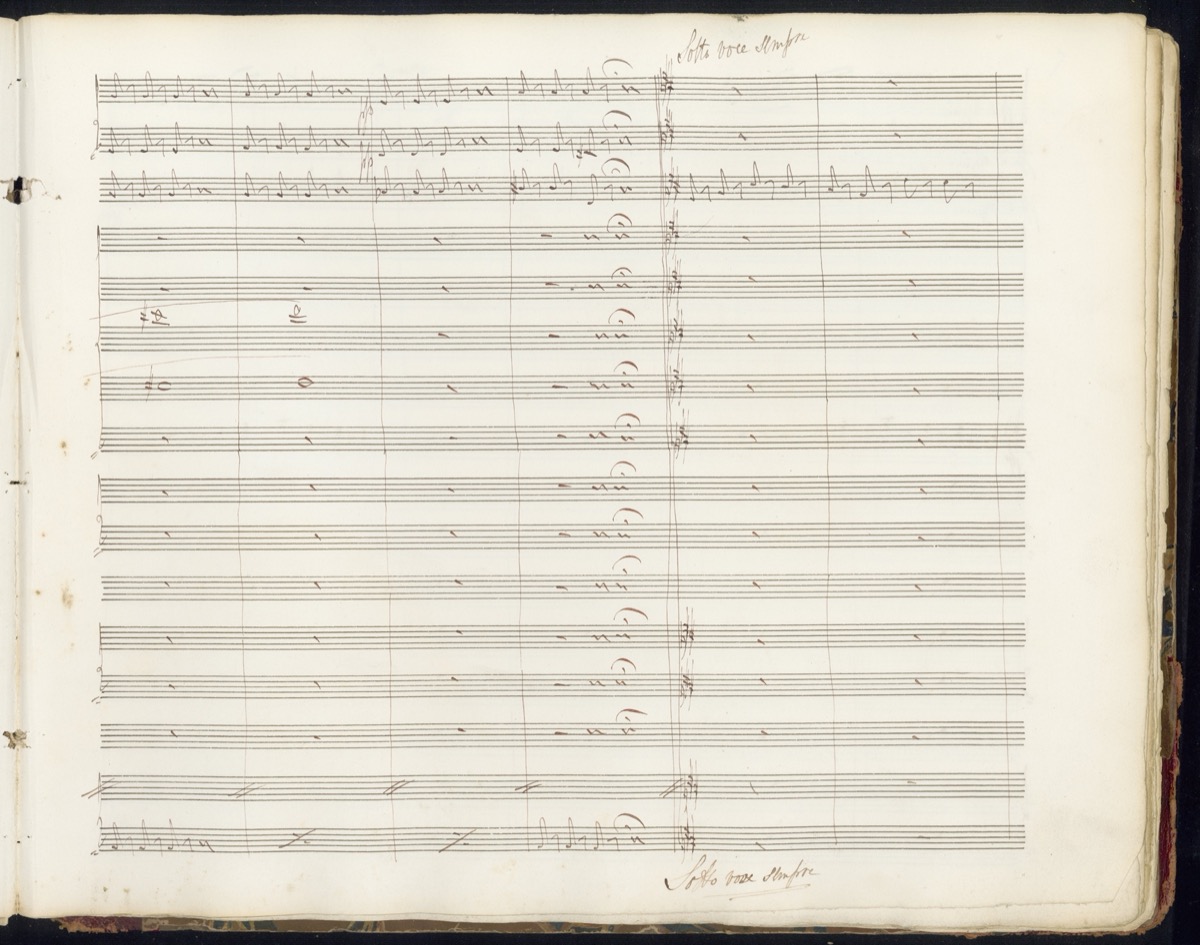 Sotto voce sempre
pp
pp
Sotto voce sempre